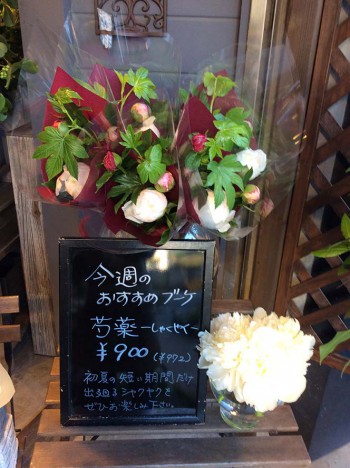 今週の
おすすめブーケ
芍薬〜しゃくやく〜
¥900(¥972)
初夏の短い期間だけ
出廻るシャクヤクを
ぜひお楽しみ下さい。